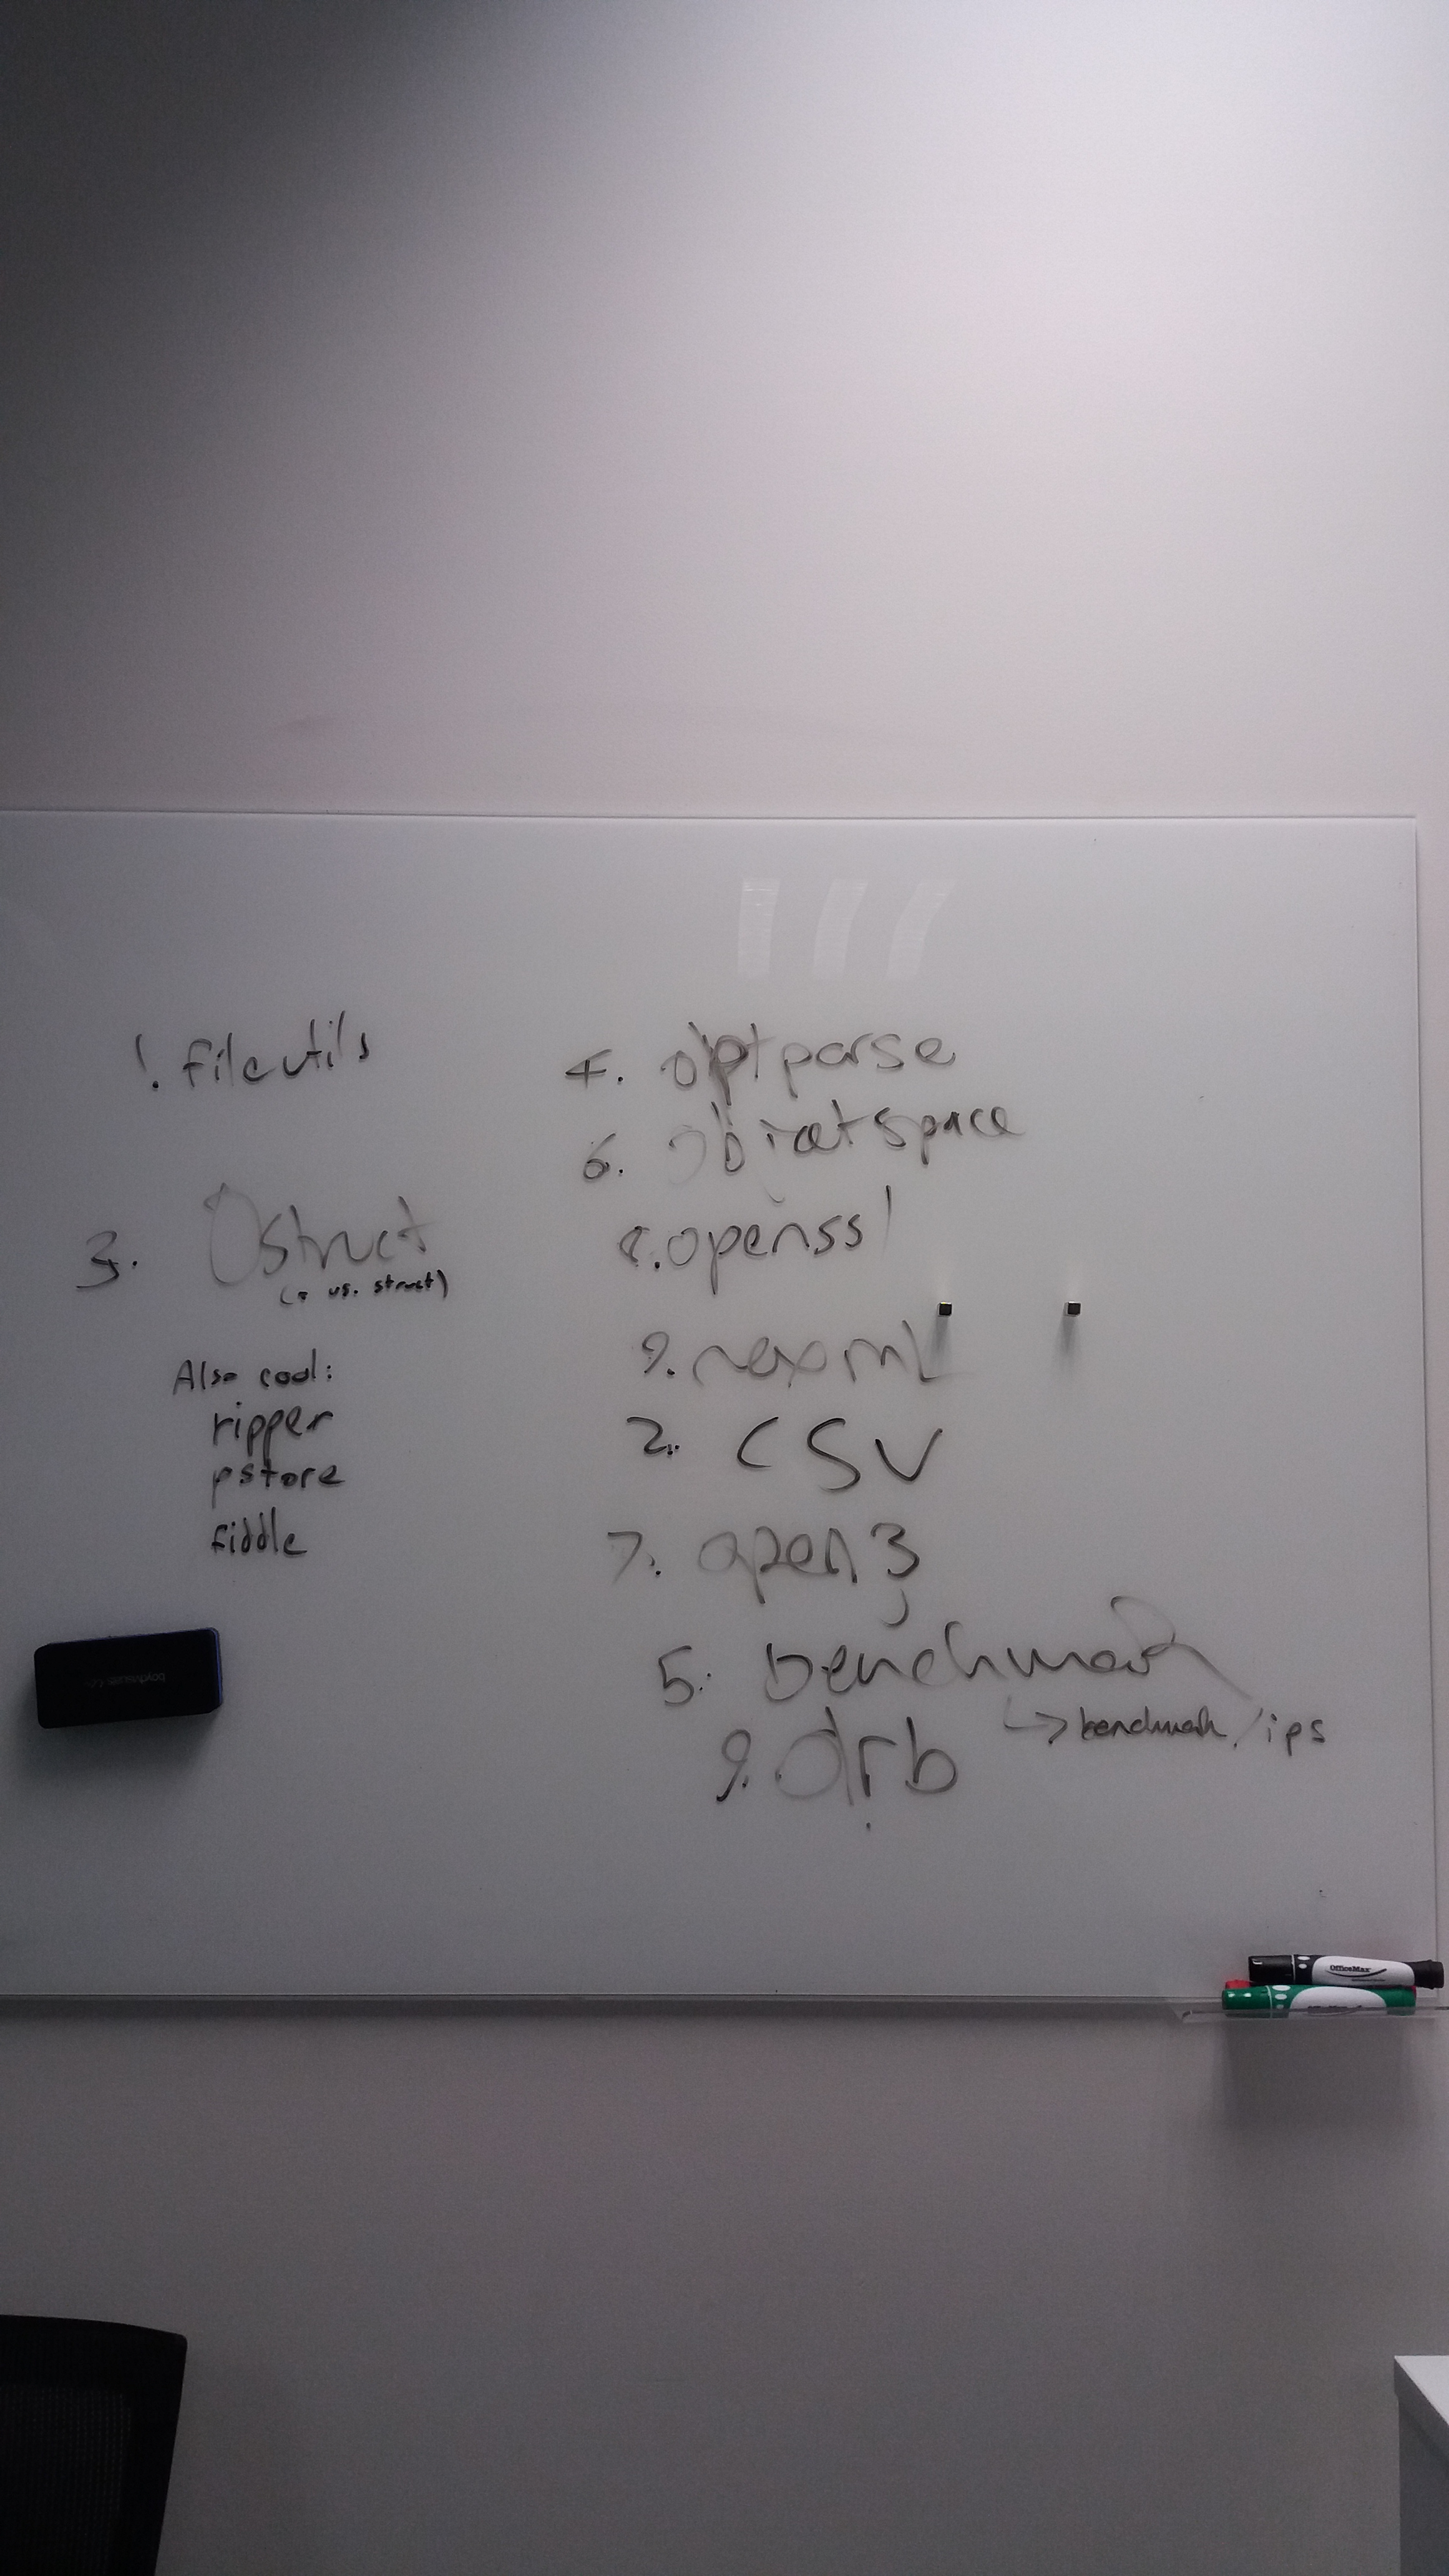 1. fileutils
3. Ostruct
(* vs. struct)
Also cool:
ripper
pstore
fiddle
4. optparse
6. Objectspace
8. openssl
9. rexml
2. CSV
7. open3
5. benchmark
→ benchmark/ips
9. drb
OfficeMax